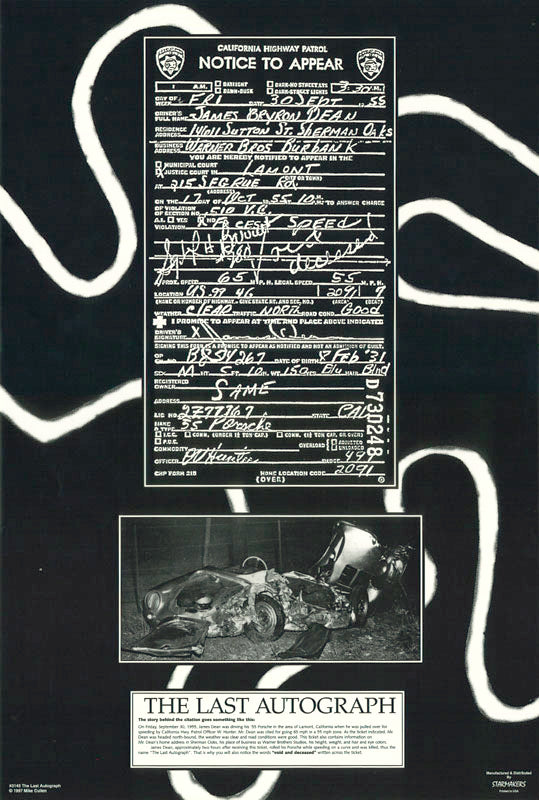 CALIFORNIA HIGHWAY PATROL
NOTICE TO APPEAR
A.M. DAYLIGHT DARK-NO STREET LTS 3:30 P.M.
DAWN-DUSK DARK-STREET LIGHTS
DAY OF WEEK FRI DATE 30 SEPT 19 55
DRIVER'S FULL NAME JAMES BRYRON DEAN
RESIDENCE ADDRESS 14611 SUTTON ST. SHERMAN OAKS
BUSINESS ADDRESS WARNER BROS BURBANK
YOU ARE HEREBY NOTIFIED TO APPEAR IN THE
MUNICIPAL COURT
JUSTICE COURT IN LAMONT
(CITY OR TOWN)
AT 215 SEGRUE RD.
(ADDRESS)
ON THE 17 DAY OF OCT 1955 10 M. TO ANSWER CHARGE
OF VIOLATION
OF SECTION NO. 510 V.C.
A.I. YES NO
VIOLATION EXCESS SPEED
void
deceased
PROX. SPEED 65 M.P.H. LEGAL SPEED 55 M.P.H.
LOCATION US 99 46 2091 7
(NAME OR NUMBER OF HIGHWAY - GIVE STREET NO. AND SEC. NO.) (AREA) (BEAT)
WEATHER CLEAR TRAFFIC NORTH ROAD COND. GOOD
I PROMISE TO APPEAR AT TIME AND PLACE ABOVE INDICATED
DRIVER'S SIGNATURE
SIGNING THIS FORM IS A PROMISE TO APPEAR AS NOTIFIED AND NOT AN ADMISSION OF GUILT.
OP CH. NO. B854267 DATE OF BIRTH 8 Feb '31
SEX M HT. 5 FT. 10 IN. WT. 150 EYES Blu HAIR Blnd
REGISTERED OWNER SAME
ADDRESS
LIC NO. 2Z77767 STATE CAL
MAKE & TYPE 55 Porsche
I.C.C. COMM. (UNDER 1½ TON CAP.) COMM. (1½ TON CAP. OR OVER)
P.U.C. OVERLOAD ADJUSTED
UNLOADED
COMMODITY
OFFICER Hunter BADGE 49
CHP FORM 215 HOME LOCATION CODE 2091
(OVER)
D730248
THE LAST AUTOGRAPH
The story behind the citation goes something like this:
On Friday, September 30, 1955, James Dean was driving his '55 Porsche in the area of Lamont, California when he was pulled over for
speeding by California Hwy. Patrol Officer W. Hunter. Mr. Dean was cited for going 65 mph in a 55 mph zone. As the ticket indicated, Mr.
Dean was headed north-bound, the weather was clear and road conditions were good. The ticket also contains information on
Mr. Dean's home address in Sherman Oaks, his place of business as Warner Brothers Studios, his height, weight, and hair and eye colors.
James Dean, approximately two hours after receiving this ticket, rolled his Porsche while speeding on a curve and was killed, thus the
name "The Last Autograph". That is why you will also notice the words "void and deceased" written across the ticket.
#3145 The Last Autograph
© 1997 Mike Cullen
Manufactured & Distributed By
STARMAKERS
Printed in USA